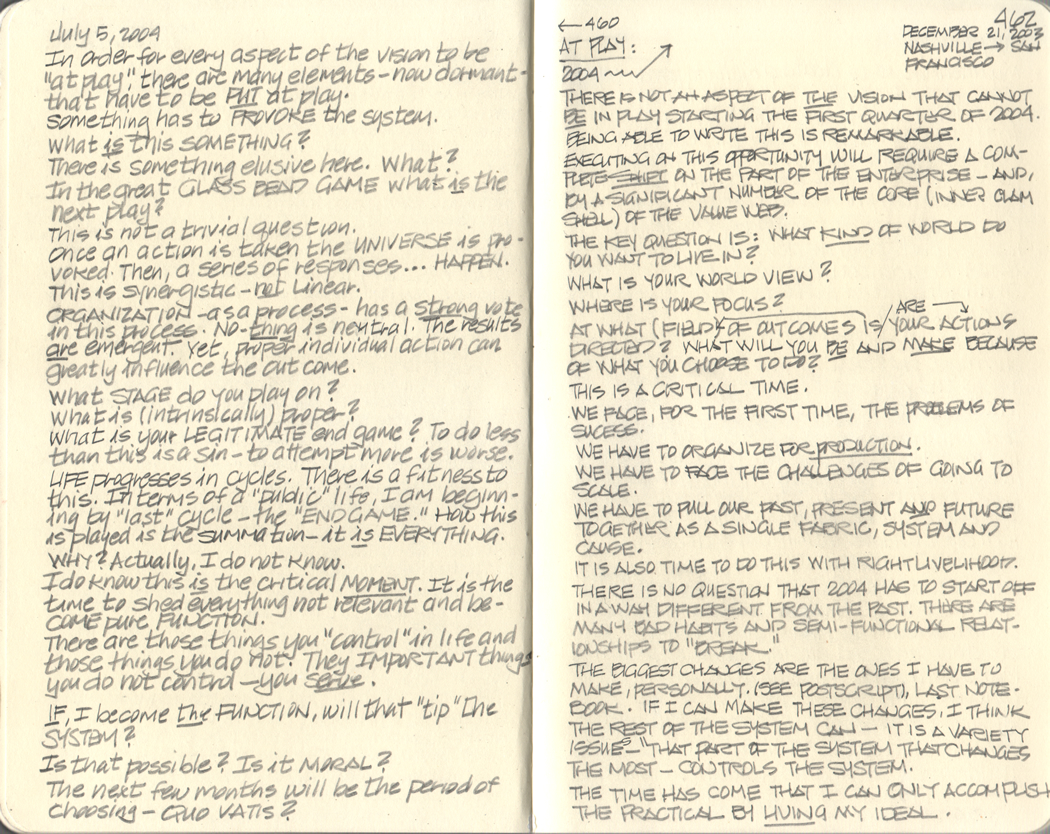 July 5, 2004
In order for every aspect of the vision to be
"at play", there are many elements - now dormant -
that have to be PUT at play.
Something has to PROVOKE the system.
What is this SOMETHING?
There is something elusive here. What?
In the great GLASS BEAD GAME what is the
next play?
This is not a trivial question.
Once an action is taken the UNIVERSE is pro-
voked. Then, a series of responses... HAPPEN.
This is synergistic - not linear.
ORGANIZATION - as a process - has a strong vote
in this process. NO-thing is neutral. The results
are emergent. Yet, proper individual action can
greatly influence the out come.
What STAGE do you play on?
What is (intrinsically) proper?
What is your LEGITIMATE end game? To do less
than this is a sin - to attempt more is worse.
LIFE progresses in cycles. There is a fitness to
this. In terms of a "public" life, I am beginn-
ing by "last" cycle - the "END GAME." How this
is played is the summation - it is EVERYTHING.
WHY? Actually, I do not know.
I do know this is the critical MOMENT. It is the
time to shed everything not relevant and be-
COME pure FUNCTION.
There are those things you "control" in life and
those things you do not. They IMPORTANT things
you do not control - you serve.
IF, I become the FUNCTION, will that "tip" the
SYSTEM?
Is that possible? Is it MORAL?
The next few months will be the period of
choosing - QUO VATIS?
← 460
462
AT PLAY:
2004
DECEMBER 21, 2003
NASHVILLE → SAN
FRANCISCO
THERE IS NOT AN ASPECT OF THE VISION THAT CANNOT
BE IN PLAY STARTING THE FIRST QUARTER OF 2004.
BEING ABLE TO WRITE THIS IS REMARKABLE.
EXECUTING ON THIS OPPORTUNITY WILL REQUIRE A COM-
PLETE SHIFT ON THE PART OF THE ENTERPRISE - AND,
BY A SIGNIFICANT NUMBER OF THE CORE (INNER CLAM
SHELL) OF THE VALUE WEB.
THE KEY QUESTION IS: WHAT KIND OF WORLD DO
YOU WANT TO LIVE IN?
WHAT IS YOUR WORLD VIEW?
WHERE IS YOUR FOCUS?
ARE
AT WHAT (FIELD) OF OUTCOMES IS/YOUR ACTIONS
DIRECTED? WHAT WILL YOU BE AND MAKE BECAUSE
OF WHAT YOU CHOOSE TO DO?
THIS IS A CRITICAL TIME.
WE FACE, FOR THE FIRST TIME, THE PROBLEMS OF
SUCESS.
WE HAVE TO ORGANIZE FOR PRODUCTION.
WE HAVE TO FACE THE CHALLENGES OF GOING TO
SCALE.
WE HAVE TO PULL OUR PAST, PRESENT AND FUTURE
TOGETHER AS A SINGLE FABRIC, SYSTEM AND
CAUSE.
IT IS ALSO TIME TO DO THIS WITH RIGHT LIVELIHOOD.
THERE IS NO QUESTION THAT 2004 HAS TO START OFF
IN A WAY DIFFERENT FROM THE PAST. THERE ARE
MANY BAD HABITS AND SEMI-FUNCTIONAL RELAT-
IONSHIPS TO "BREAK."
THE BIGGEST CHANGES ARE THE ONES I HAVE TO
MAKE, PERSONALLY. (SEE POSTSCRIPT), LAST NOTE-
BOOK. IF I CAN MAKE THESE CHANGES, I THINK
THE REST OF THE SYSTEM CAN - IT IS A VARIETY
ISSUE - "THAT PART OF THE SYSTEM THAT CHANGES
THE MOST - CONTROLS THE SYSTEM.
THE TIME HAS COME THAT I CAN ONLY ACCOMPLISH
THE PRACTICAL BY LIVING MY IDEAL.